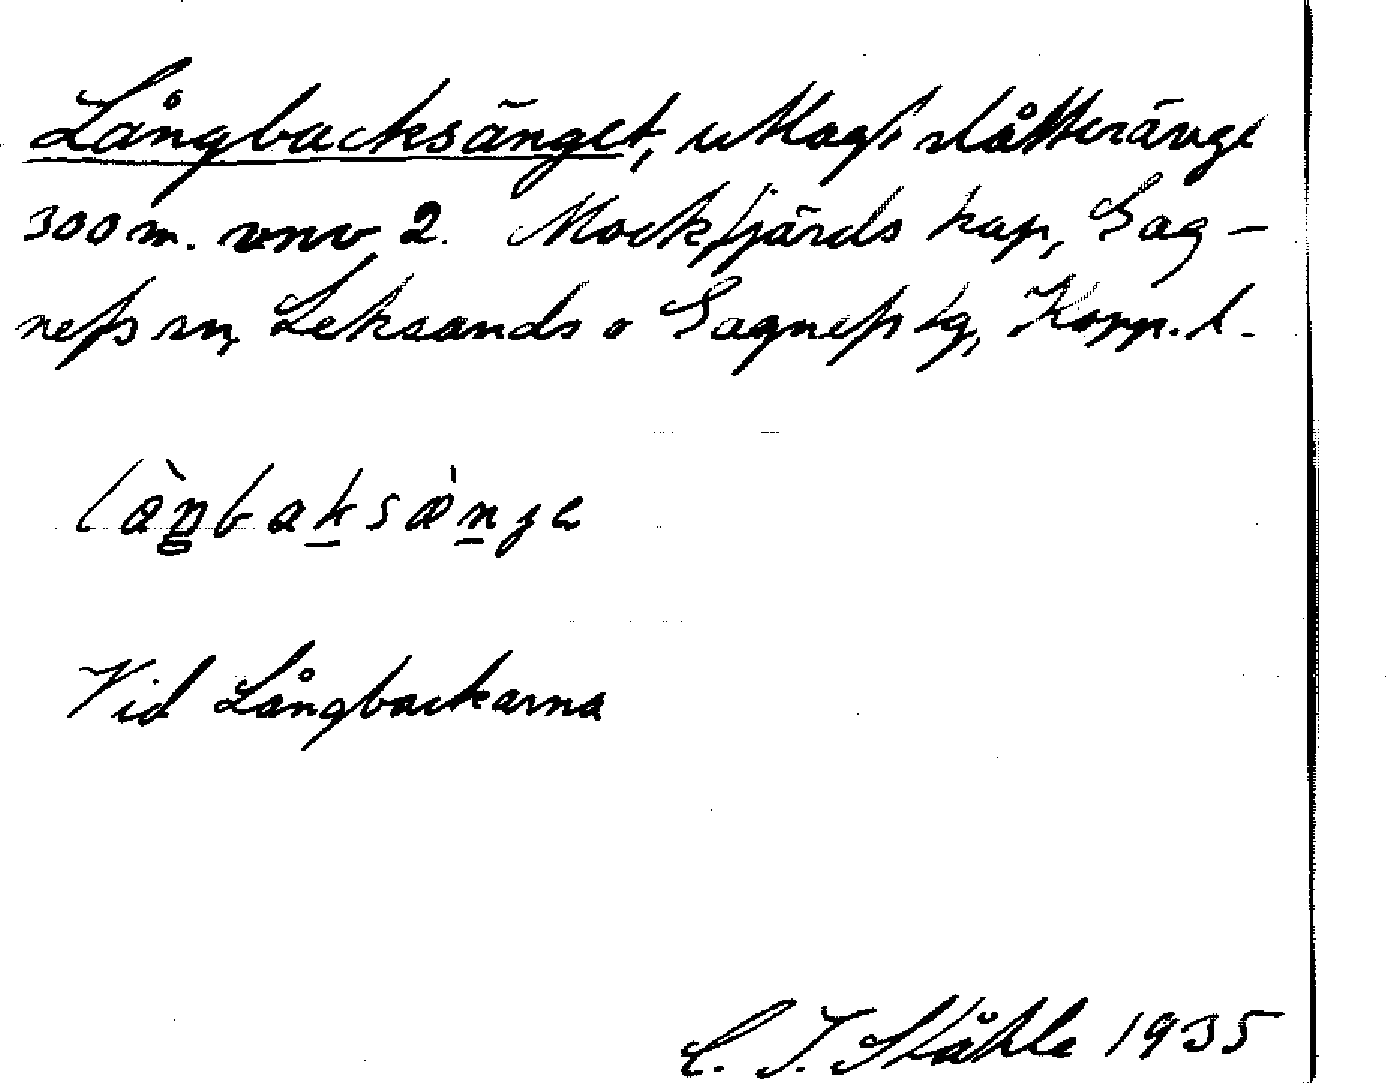 Långbacksänget, utlagt slåtteränge
300 m. vnv 2. Mockfjärds kap, Gag-
nefs sn, Leksands o Gagnefs tg, Kopp. l.
làŋbaksæ̀nje
Vid Långbackarna
C. I. Ståhle 1935